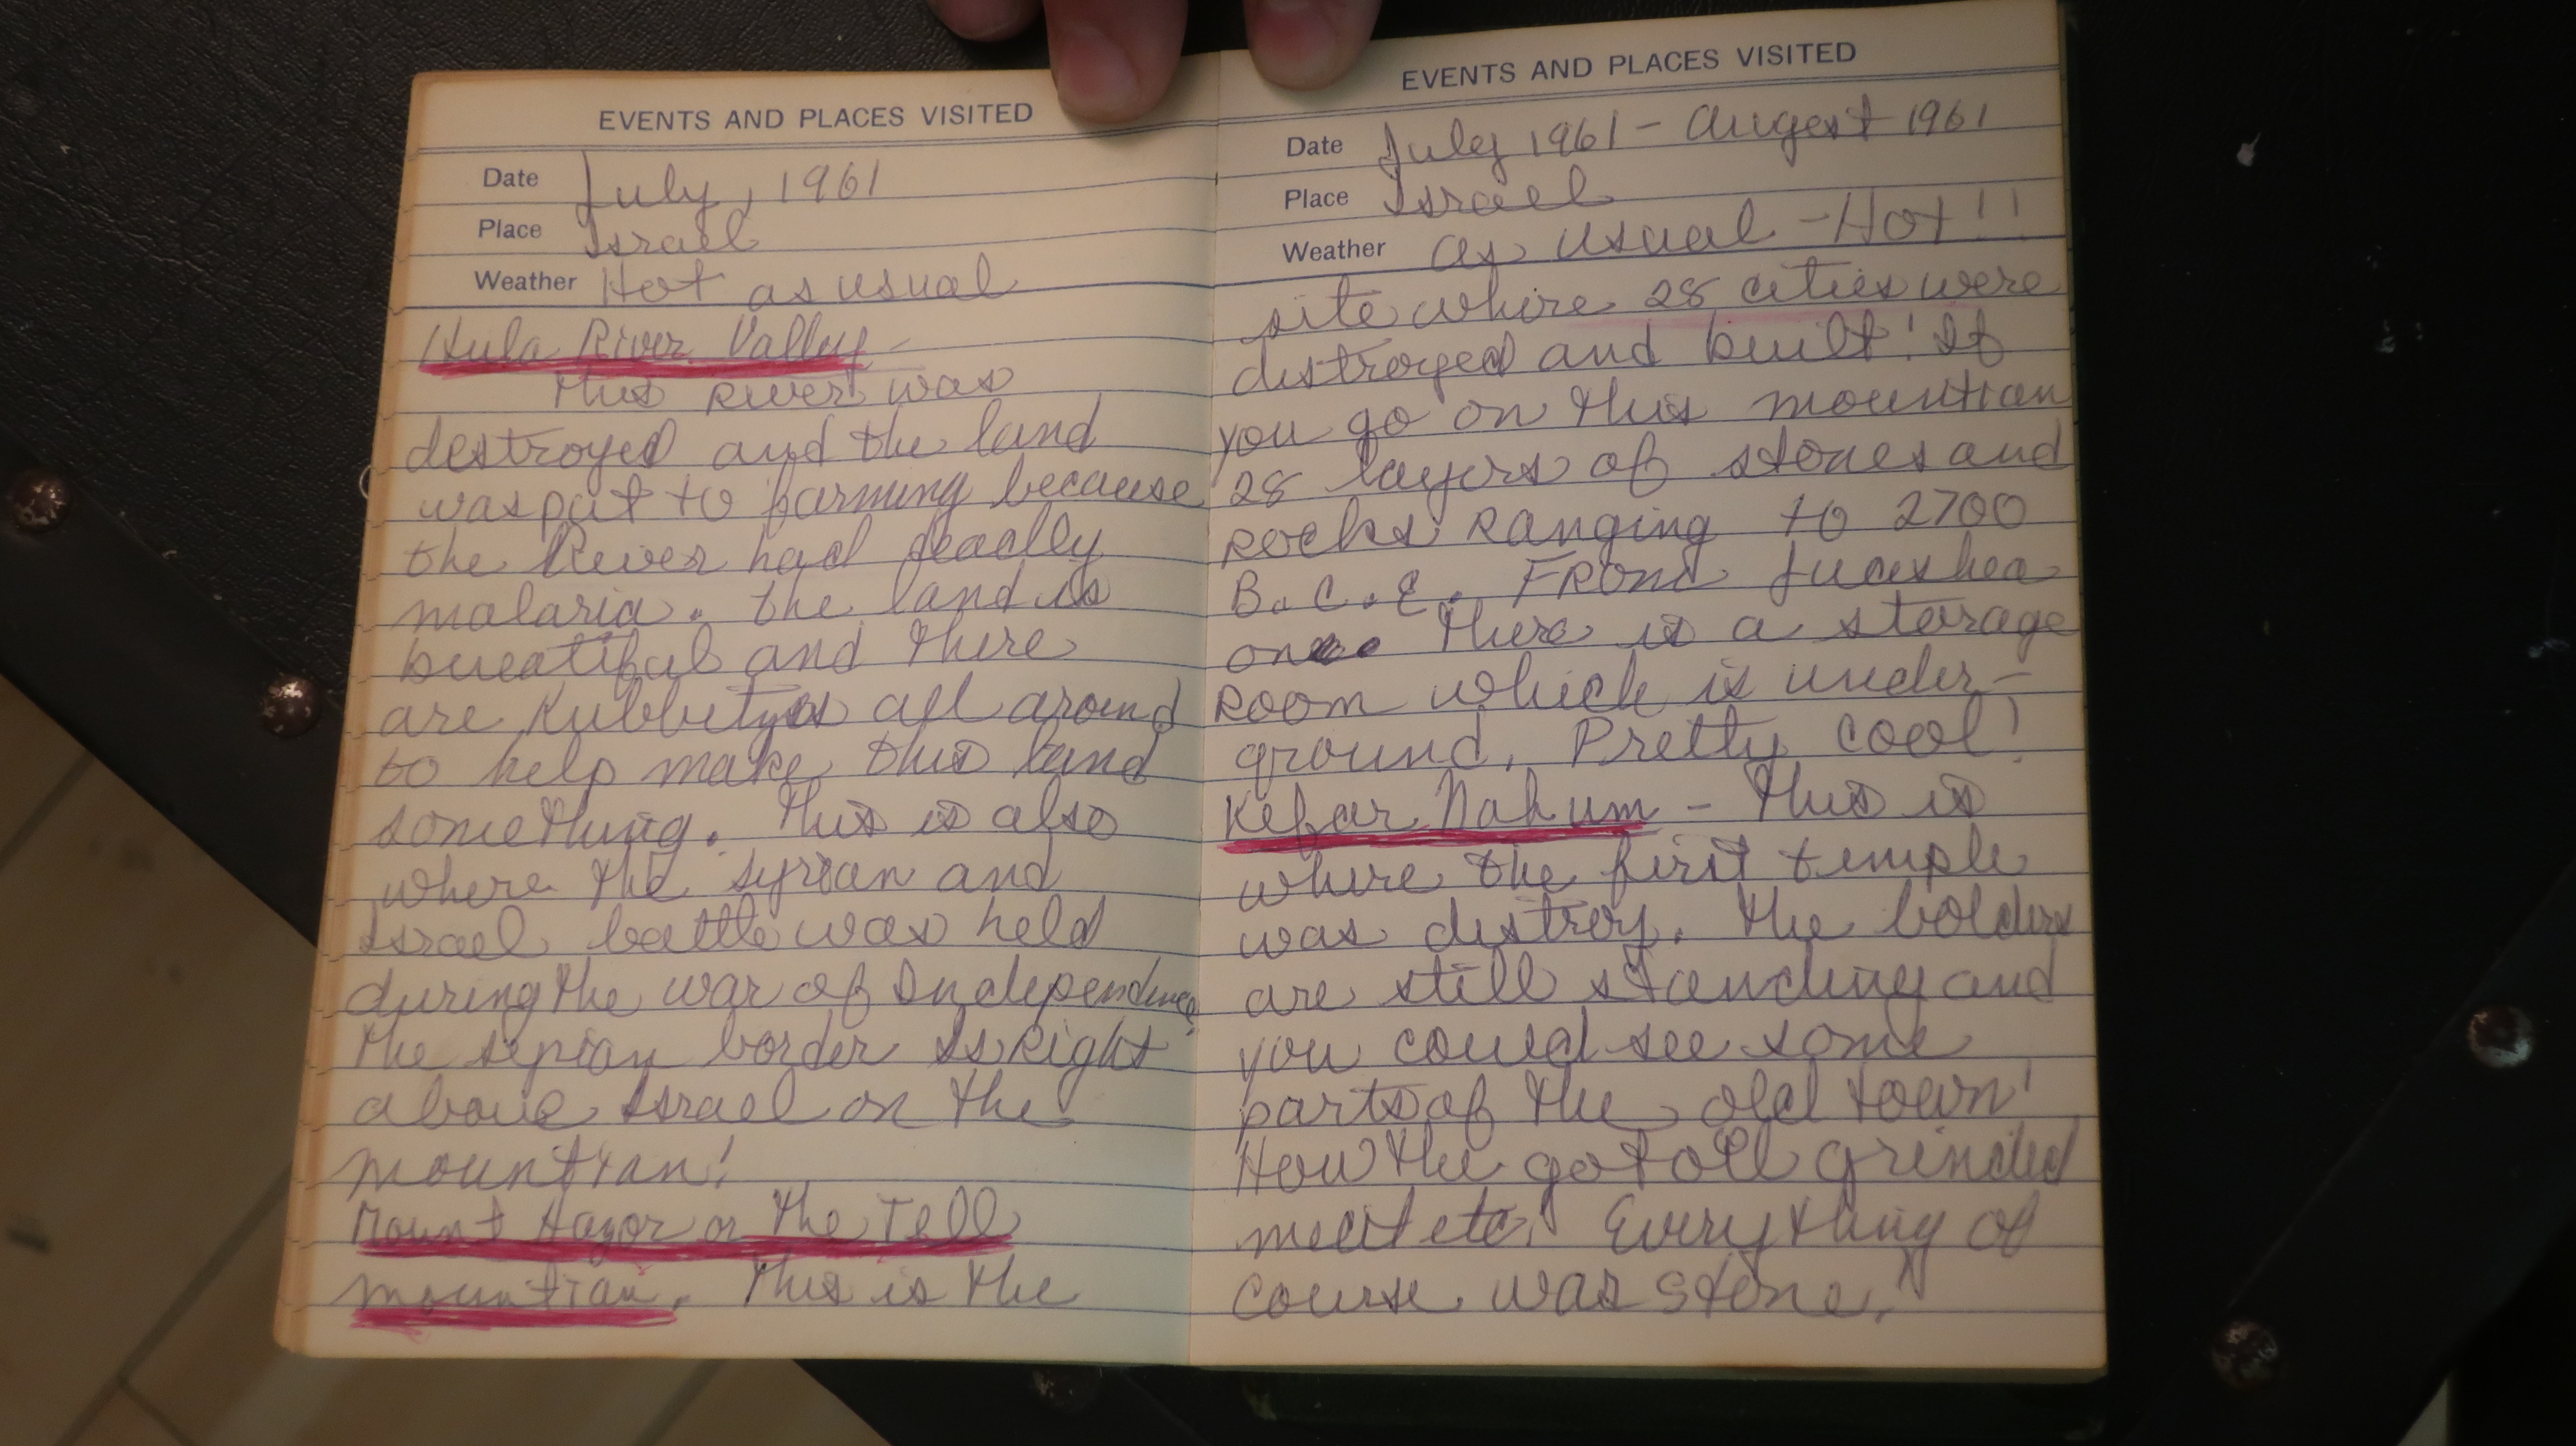 EVENTS AND PLACES VISITED
Date July, 1961
Place Israel
Weather Hot as usual
Hula River Valley -
This River was
destroyed and the land
was put to farming because
the River had deadly
malaria. the land is
bueatiful and there
are Kubbutzs all around
to help make this land
something. This is also
where the Syrian and
Israel battle was held
during the war of Independence
the syrian border is Right
above Israel on the
mountian!
Mount Hazor or the Tell
mountian. This is the
EVENTS AND PLACES VISITED
Date July 1961 - Augest 1961
Place Israel
Weather as usual - Hot!!
site where 28 cities were
destroyed and built! If
you go on this mountian
28 layors of stones and
Rocks Ranging to 2700
B.C.E. FROM
one there is a storage
Room which is under-
ground. Pretty cool!
Kefar Nahum - This is
where the first temple
was destroy. The bolders
are still standing and
you could see some
parts of the old town!
How the got oil grinded
meat etc. Everything of
course was stone.